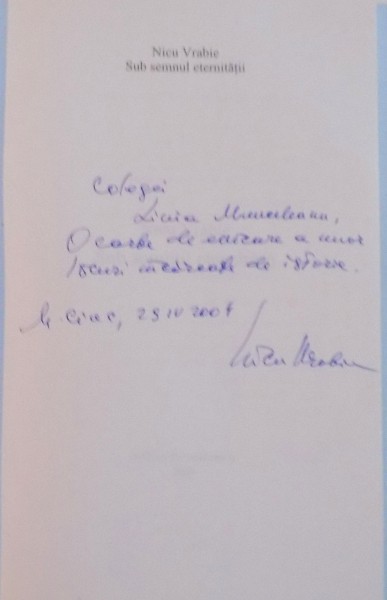 Nicu Vrabie
Sub semnul eternității
Colegei
Livia
O carte de evocare a unor
locuri încărcate de istorie.
M. Ciuc, 29 IV 2007
Nicu Vrabie